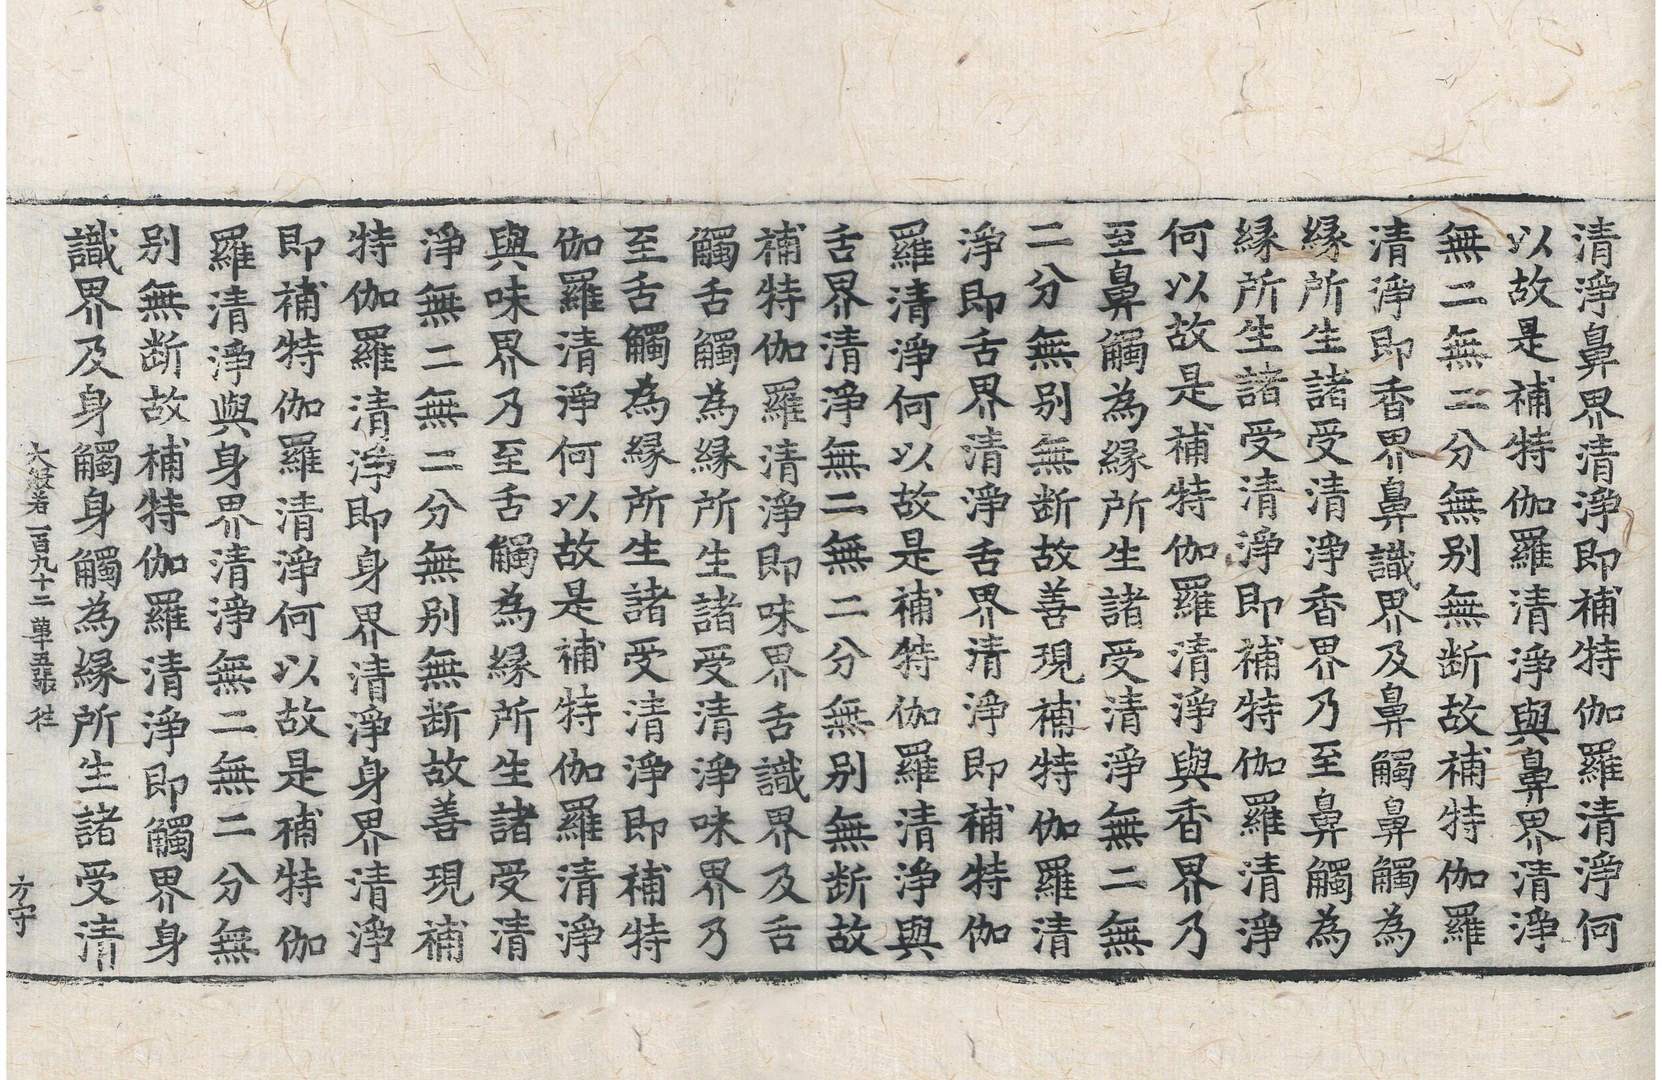 清淨鼻界清淨即補特伽羅清淨何
以故是補特伽羅清淨與鼻界清淨
無二無二分無别無断故補特伽羅
清淨即香界鼻識界及鼻觸鼻觸為
縁所生諸受清淨香界乃至鼻觸為
縁所生諸受清淨即補特伽羅清淨
何以故是補特伽羅清淨與香界乃
至鼻觸為縁所生諸受清淨無二無
二分無别無断故善現補特伽羅清
淨即舌界清淨舌界清淨即補特伽
羅清淨何以故是補特伽羅清淨與
舌界清淨無二無二分無别無断故
補特伽羅清淨即味界舌識界及舌
觸舌觸為縁所生諸受清淨味界乃
至舌觸為縁所生諸受清淨即補特
伽羅清淨何以故是補特伽羅清淨
與味界乃至舌觸為縁所生諸受清
淨無二無二分無别無断故善現補
特伽羅清淨即身界清淨身界清淨
即補特伽羅清淨何以故是補特伽
羅清淨與身界清淨無二無二分無
别無断故補特伽羅清淨即觸界身
識界及身觸身觸為縁所生諸受清
大般若一百九十二 第五張 往
方守